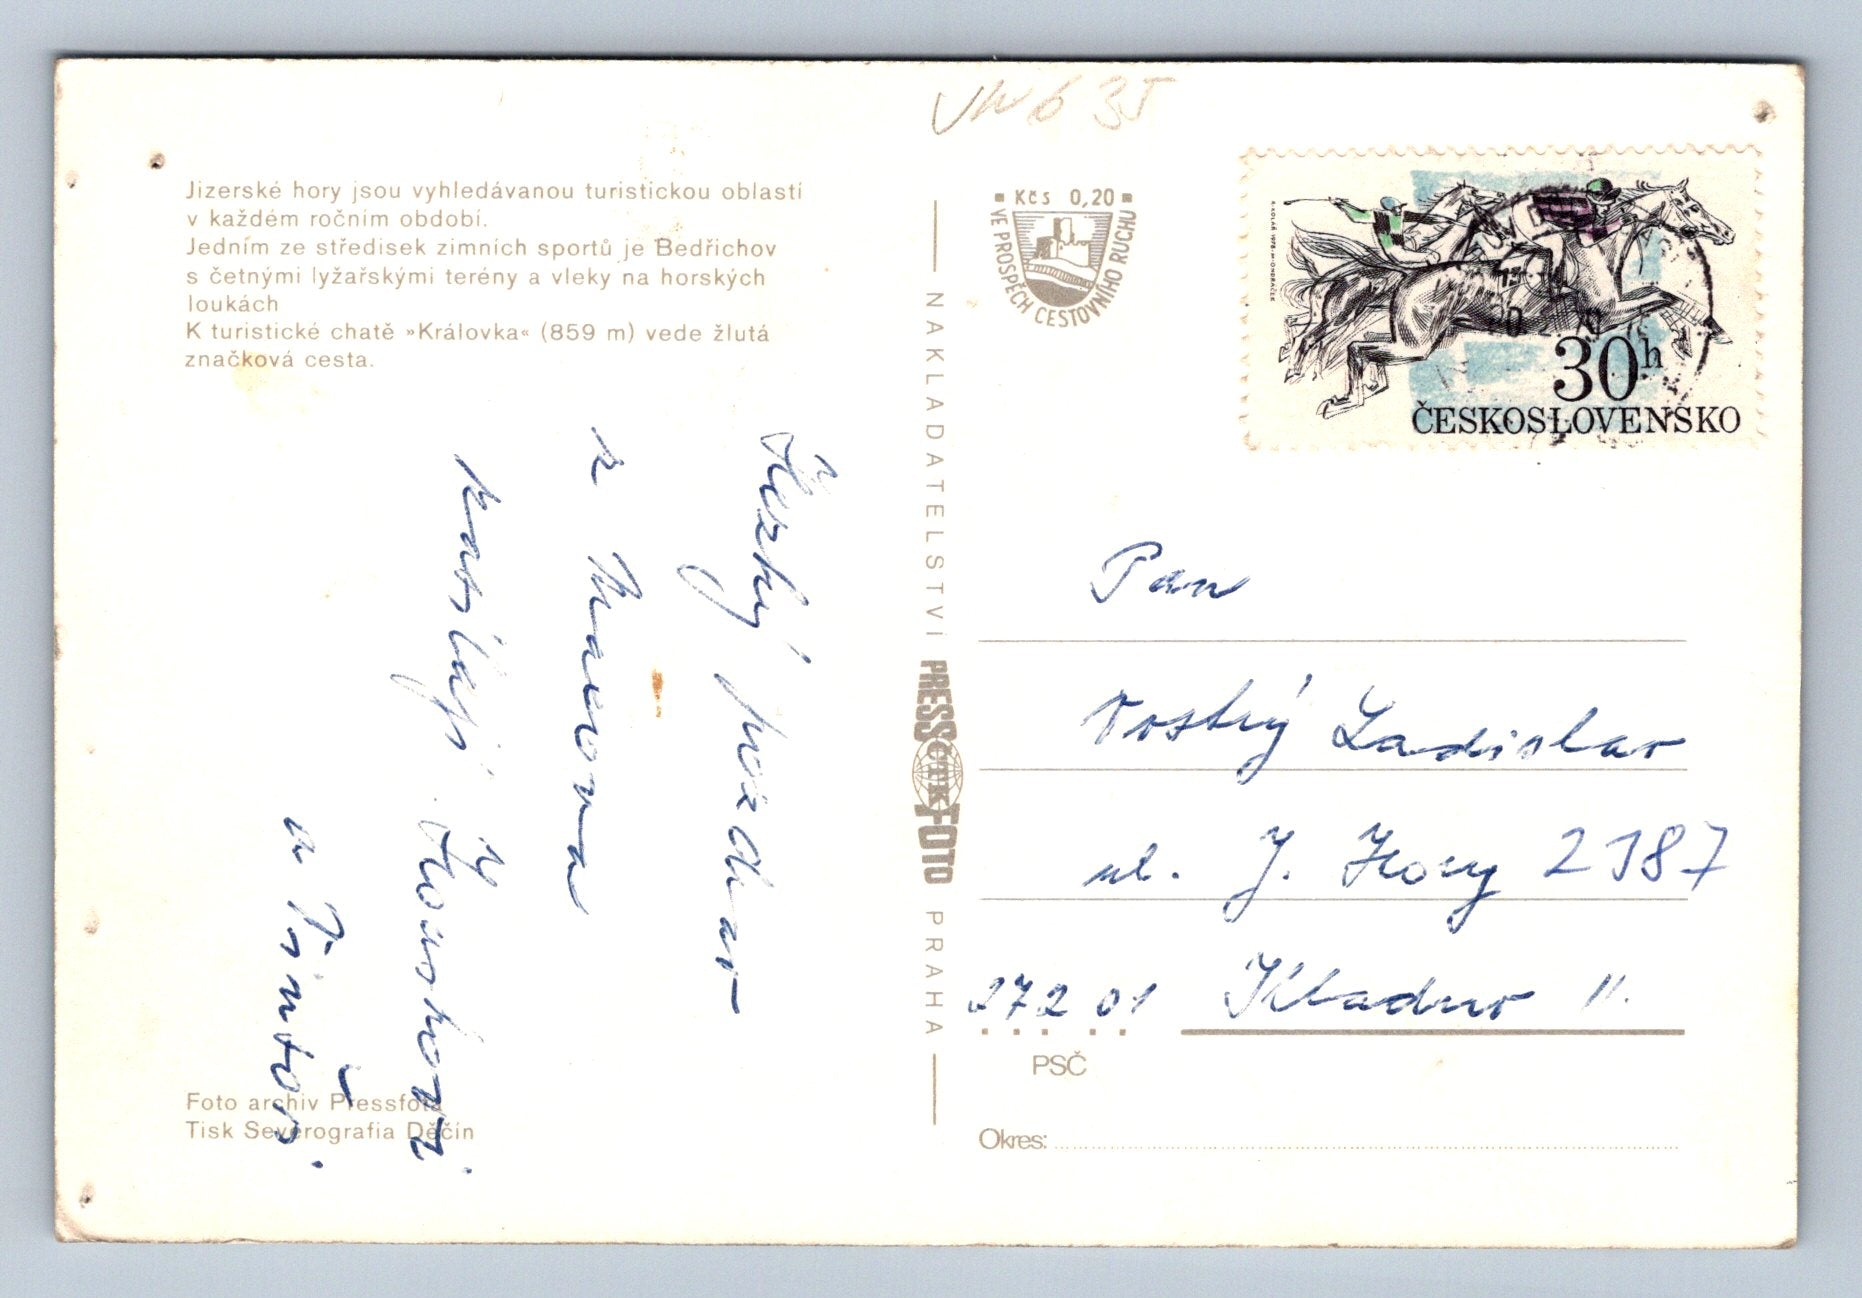 Jizerské hory jsou vyhledávanou turistickou oblastí
v každém ročním období.
Jedním ze středisek zimních sportů je Bedřichov
s četnými lyžařskými terény a vleky na horských
loukách
K turistické chatě »Královka« (859 m) vede žlutá
značková cesta.
Hezký pozdrav
z
zasílají
a
Foto archiv Pressfoto
Tisk Severografia Děčín
NAKLADATELSTVÍ PRESSFOTO PRAHA
ČTK
Kčs 0,20
VE PROSPĚCH CESTOVNÍHO RUCHU
30h
ČESKOSLOVENSKO
Pan
Vostrý Ladislav
ul. J. Hory 2387
272 01 Kladno II.
PSČ
Okres: